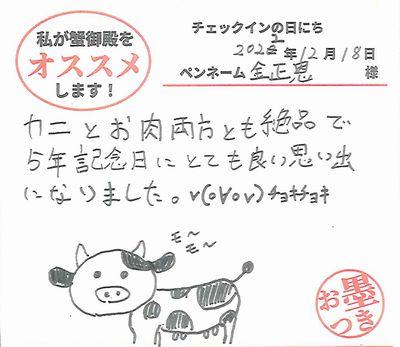 私が蟹御殿を
オススメ
します！
チェックインの日にち
2022年12月18日
ペンネーム 金正恩 様
カニとお肉両方とも絶品で
5年記念日にとても良い思い出
になりました。v(o∀ov)ﾁｮｷﾁｮｷ
モ〜
モ〜
お墨
つき